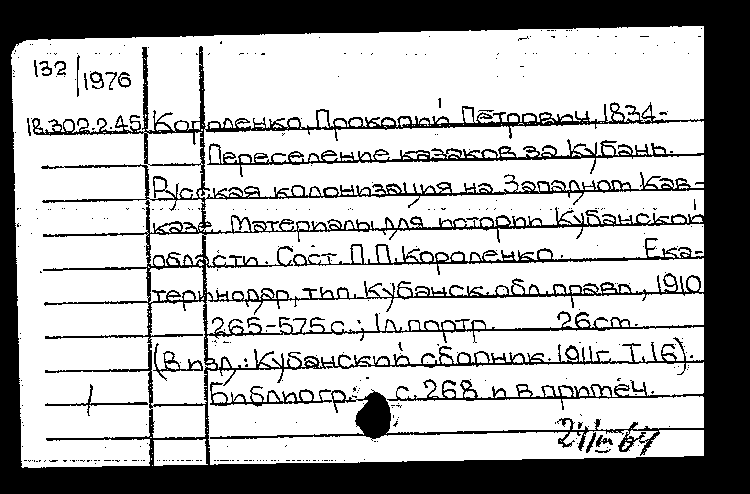 132/1976
18.302.2.45 Короленко, Прокопий Петрович, 1834-
Переселение казаков за Кубань.
Русская колонизация на Западном Кав-
казе. Материалы для истории Кубанской
области. Сост. П.П.Короленко. Ека-
теринодар, тип. Кубанск. обл. правл., 1910
265-575 с.; 1 л. портр. 26 cm.
(В изд.: Кубанский сборник. 1911г. Т.16).
Библиогр.: с. 268 и в примеч.
24/III 64